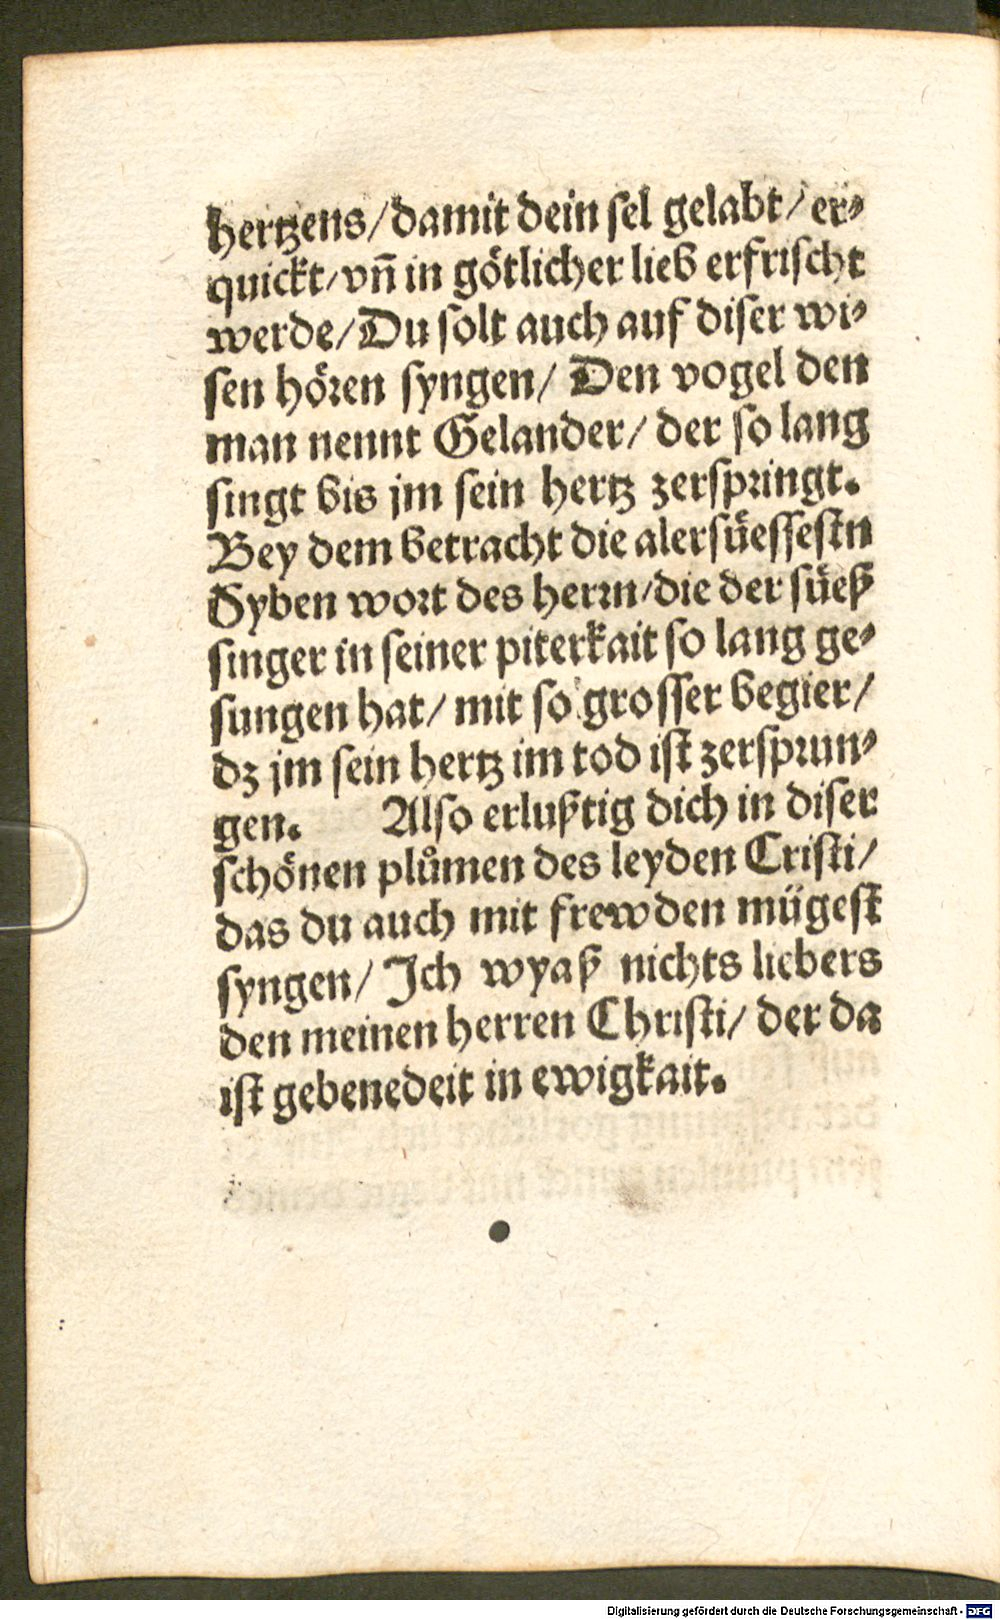 hertzens/damit dein sel gelabt/er⸗
quickt/vn̄ in götlicher lieb erfrischt
werde/Du solt auch auf diser wi⸗
sen hören syngen/ Den vogel den
man nennt Gelander/ der so lang
singt bis jm sein hertz zerspringt.
Bey dem betracht die alersüessestn
Syben wort des herrn/die der süeß
singer in seiner piterkait so lang ge⸗
sungen hat/ mit so grosser begier/
dz jm sein hertz im tod ist zersprun⸗
gen. Also erlußtig dich in diser
schönen plůmen des leyden Cristi/
das du auch mit frewden mügest
syngen/ Ich wyaß nichts liebers
den meinen herren Christi/ der da
ist gebenedeit in ewigkait.
Digitalisierung gefördert durch die Deutsche Forschungsgemeinschaft - DFG